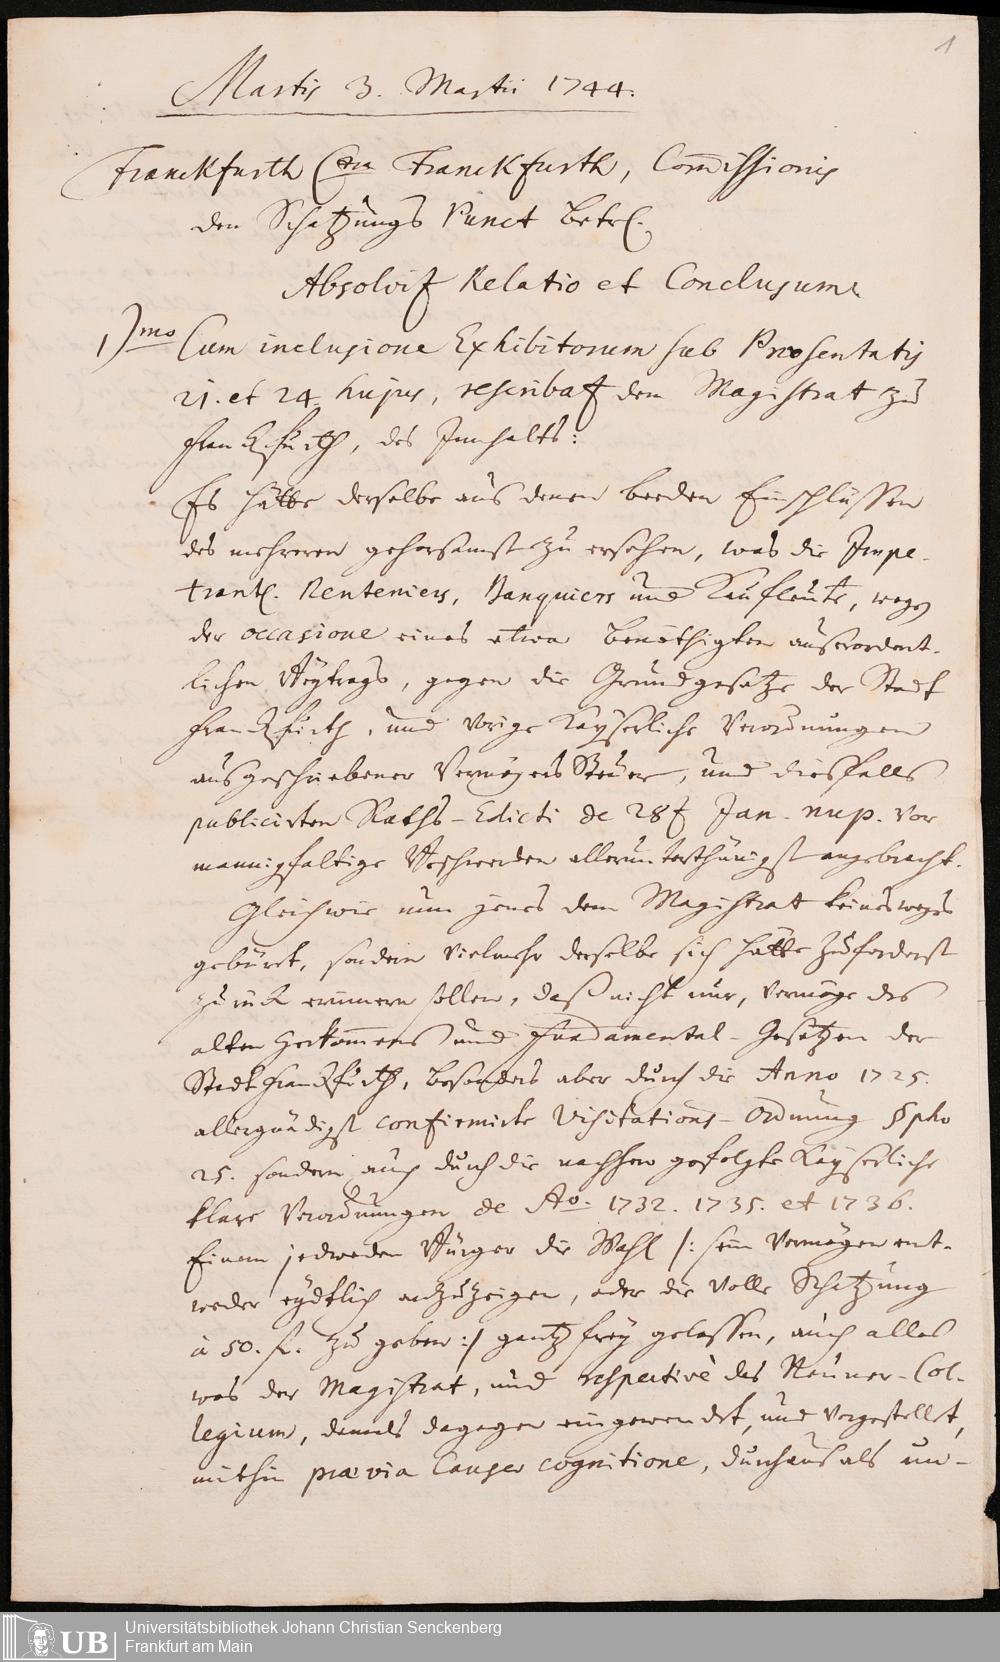 1
Martis 3. Martii 1744.
Franckfurth Cra Franckfurth, Com̄issionis
den Schatzungs Punct betrl.
Absolvitur Relatio et Conclusum.
1)mo Cum inclusione Exhibitorum sub Præsentatis
21. et 24. hujus, rescribatur dem Magistrat zu
Franckfurth, des Innhalts:
Es hätte derselbe aus denen beeden Einschlüssen
des mehreren gehorsamst zu ersehen, was die Impe-
trantl. Renteniers, Banquiers und Kaufleute, wegen
der occasione eines etwa benöthigten ausserordent-
lichen Beytrags, gegen die Grundgesetze der Stadt
Franckfurth, und vorige Kayserliche Verordnungen
ausgeschriebener Vermögens Steuer, und diesfalls
publicirten Raths-Edicti de 28t Jan. nup. vor
mannigfaltige Beschwerden allerunterthänigst angebracht.
Gleichwie nun jenes dem Magistrat keinesweges
gebührt, sondern vielmehr derselbe sich hätte zuforderst
zurück erinnern sollen, daß nicht nur, vermöge des
alten Herkom̄ens und Fundamental-Gesetzen der
Stadt Franckfurth, besonders aber durch die Anno 1725.
allergnädigst confirmirte Visitations-Ordnung §pho
25. sondern auch durch die nachhero gefolgte Kayserliche
klare Verordnungen de Ao. 1732. 1735. et 1736.
Einem jedweden Bürger die Wahl /: sein Vermögen ent-
weder eydtlich anzuzeigen, oder die volle Schatzung
à 50. f. zu geben :/ gantz frey gelassen, auch alles
was der Magistrat, und respective das Neuner-Col-
legium, damals dagegen eingewendet, und vorgestellet,
mithin prævia Causæ cognitione, durchaus als un-
UB
Universitätsbibliothek Johann Christian Senckenberg
Frankfurt am Main